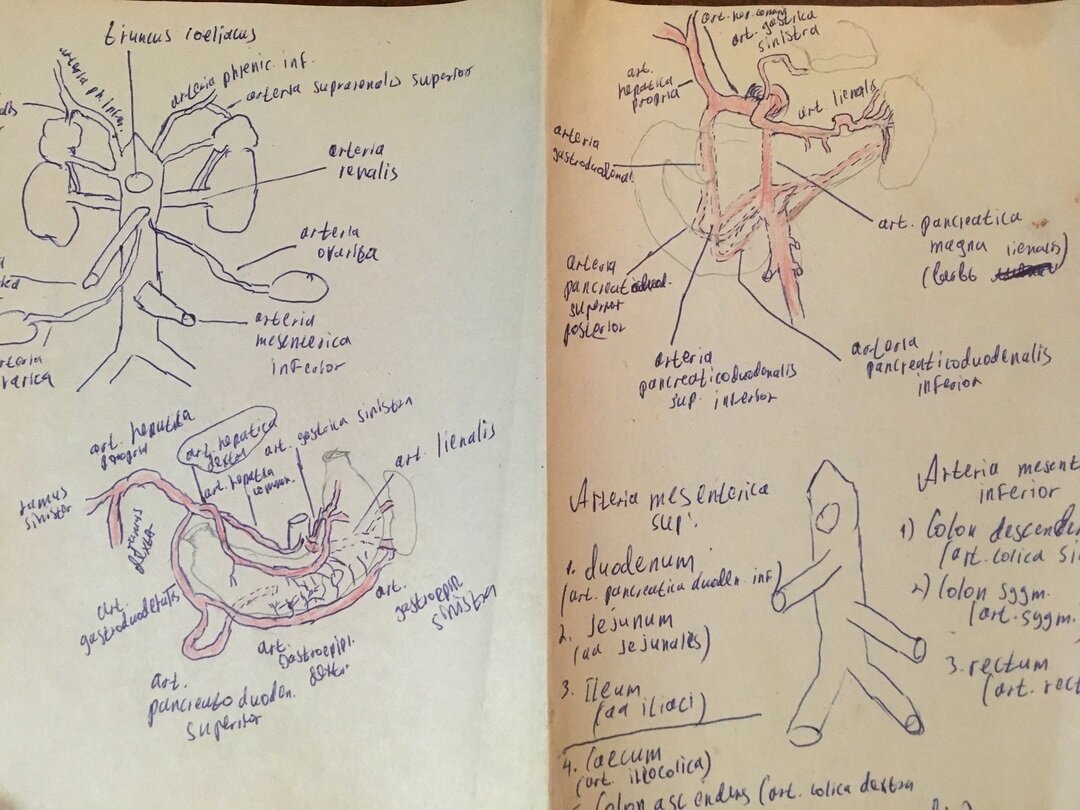 truncus coeliacus
arteria phrenic. inf.
arteria suprarenalis superior
arteria
renalis
arteria
ovarica
arteria
mesenterica
inferior
art. hepatica
propria
art. hepatica
dextra
art. gastrica sinistra
art. lienalis
art. hepatica
commun.
ramus
sinister
ramus
dexter
art.
gastroduodetalis
art.
gastroepipl.
dextr.
art.
gastroepipl.
sinistra
art.
pancreato duoden.
superior
art. hep. comunis
art. gastrica
sinistra
art.
hepatica
propria
art. lienalis
arteria
gastroduodenal
art. pancreatica
magna lienalis)
arteria
superior
posterior
arteria
pancreaticoduodenalis
sup. inferior
arteria
pancreaticoduodenalis
inferior
Arteria mesenterica
sup.
1. duodenum
(art. pancreatica duoden. inf)
2. jejunum
(aa jejunales)
3. Ileum
(aa iliaci)
4. Caecum
(art. iliocolica)
Colon ascendens (art. colica dextra
Arteria mesent
inferior
1) Colon descende
(art. colica si
2) Colon sygm.
(art. sygm.
3. rectum
(art. rect